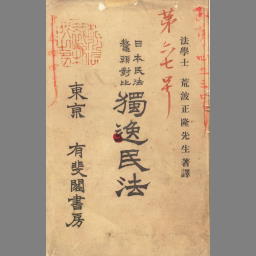 第六七号
法學士 荒波正隆先生著譯
日本民法
鼇頭對比
獨逸民法
東京 有斐閣書房